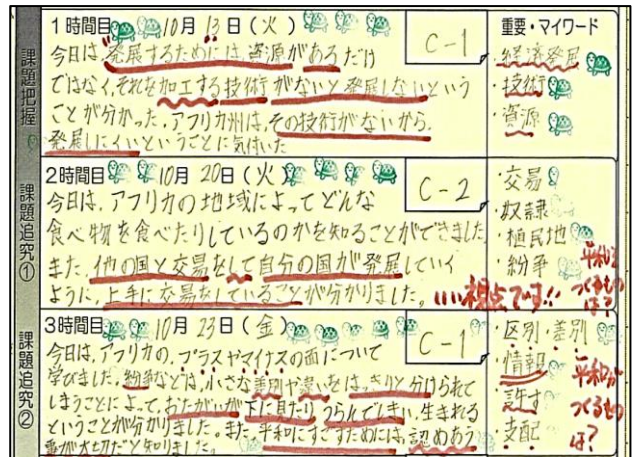 課題把握
1時間目 10月 13日(火)
C-1
今日は、発展するためには資源があるだけ
ではなく、それを加工する技術がないと発展しないという
ことが分かった。アフリカ州は、その技術がないから
発展しにくいということに気付いた
重要・マイワード
・経済発展
・技術
・資源
課題追究①
2時間目 10月 20日(火)
C-2
今日は、アフリカの地域によってどんな
食べ物を食べたりしているのかを知ることができました
また、他の国と交易をして自分の国が発展していく
ように、上手に交易をしていることが分かりました。
いい視点です!!
・交易
・奴隷
・植民地
・紛争
平和を
つくるもの
は?
課題追究②
3時間目 10月 23日(金)
C-1
今日は、アフリカの、プラスやマイナスの面について
学びました。紛争などは、小さな差別や違いをはっきりと分けられて
しまうことによって、おたがいが下に見たり うらんでしまい、生まれる
ということが分かりました。また、平和にすごすためには、認めあう
事が大切だと知りました。
・区別・差別
・情報
・許す
・支配
平和を
つくるもの
は?